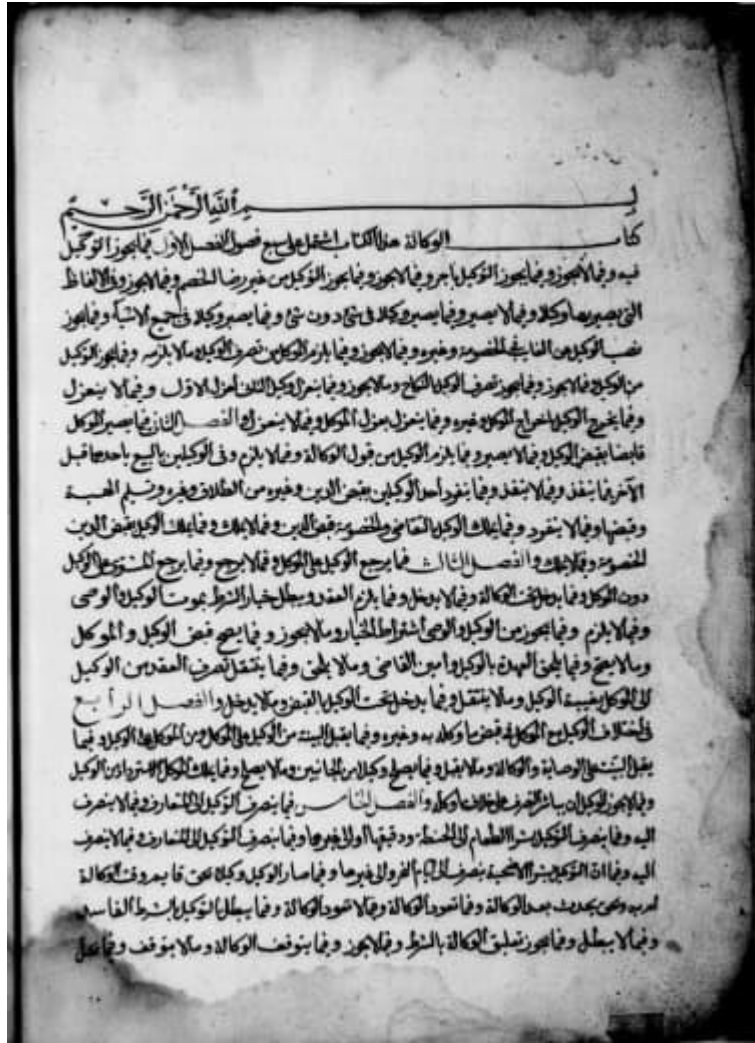 بسم الله الرحمن الرحيم
كتاب الوكالة هذا الكتاب اشتمل على سبع فصول الفصل الاول فيما يجوز التوكيل
فيه وفيما لا يجوز وفيما يجوز التوكيل باجر وفيما لا يجوز وفيما يجوز التوكيل من غير رضا الخصم وفيما لا يجوز وفي الالفاظ
التي يصير بها وكيلا وفيما لا يصير وفيما يصير وكيلا في شئ دون شئ وفيما يصير وكيلا في جميع الاشيأ وفيما يجوز
نصب الوكيل عن الغائب في الخصومة وغيره وفيما لا يجوز وفيما يلزم الموكل من تصرف الوكيل وما لا يلزمه وفيما يجوز التوكيل
من الوكيل وفيما لا يجوز وفيما يجوز تصرف الوكيل النكاح وما لا يجوز وفيما ينعزل وكيل الثاني بعزل الاول وفيما لا ينعزل
وفيما يخرج الوكيل باخراج الموكل وغيره وفيما ينعزل بعزل الموكل وفيما لا ينعزل والفصل الثاني فيما يصير الموكل
قابضا بقبض الوكيل وفيما لا يصير وفيما يلزم الوكيل من قبول الوكالة وفيما لا يلزم وفي الوكيلين بالبيع باحدهما قبل
الآخر فيما ينفذ وفيما لا ينفذ وفيما ينفرد احد الوكيلين بقبض الدين وغيره من الطلاق وغيره وتسليم الهبة
وقبضها وفيما لا ينفرد وفيما يملك الوكيل التقاضي والخصومة قبض الدين وفيما لا يملك وفيما يملك الوكيل بقبض الدين
الخصومة وفيما لا يملك والفصل الثالث فيما يرجع الوكيل على الموكل وفيما لا يرجع وفيما يرجع المشتري على الوكيل
دون الموكل وفيما يدخل تحت الوكالة وفيما لا يدخل وفيما يلزم العقد ويبطل خيار الشرط بموت الوكيل والوصي
وفيما لا يلزم وفيما يجوز من الوكيل والوصي اشتراط الخيار وما لا يجوز وفيما يصح قبض الوكيل والموكل
وما لا يصح وفيما يلحق العهدة بالوكيل وامين القاضي وما لا يلحق وفيما ينتقل تصرف العقد من الوكيل
الى الموكل بغيبة الوكيل وما لا ينتقل وفيما يدخل تحت الوكيل بالقبض وما لا يدخل والفصل الرابع
في اختلاف الوكيل مع الموكل في قبض ما وكله به وغيره وفيما يقبل البينة من الوكيل على الموكل ومن الموكل على الوكيل وفيما
يقبل البينة على الوصاية والوكالة وما لا يقبل وفيما يصلح وكيلا من الجانبين وما لا يصلح وفيما يملك الموكل الاسترداد من الوكيل
وفيما لا يجوز للوكيل ان يباشر التصرف على خلاف ما وكله والفصل الخامس فيما ينصرف التوكيل الى المتعارف وفيما لا ينصرف
اليه وفيما ينصرف التوكيل بشرا الطعام الى الحنطة ودقيقها او الى غيرها وفيما ينصرف التوكيل الى المتعارف وفيما لا ينصرف
اليه وفيما ان التوكيل بشرا الاضحية ينصرف الى ايام النحر والى غيرها وفيما صار الوكيل وكيلا بحق قايم وقت الوكالة
له وبحق يحدث بعد الوكالة وفيما تعود الوكالة وفيما لا تعود الوكالة وفيما يبطل التوكيل بالشرط الفاسد
وفيما لا يبطل وفيما يجوز تعليق الوكالة بالشرط وفيما لا يجوز وفيما يتوقف الوكالة وما لا يتوقف وفيما